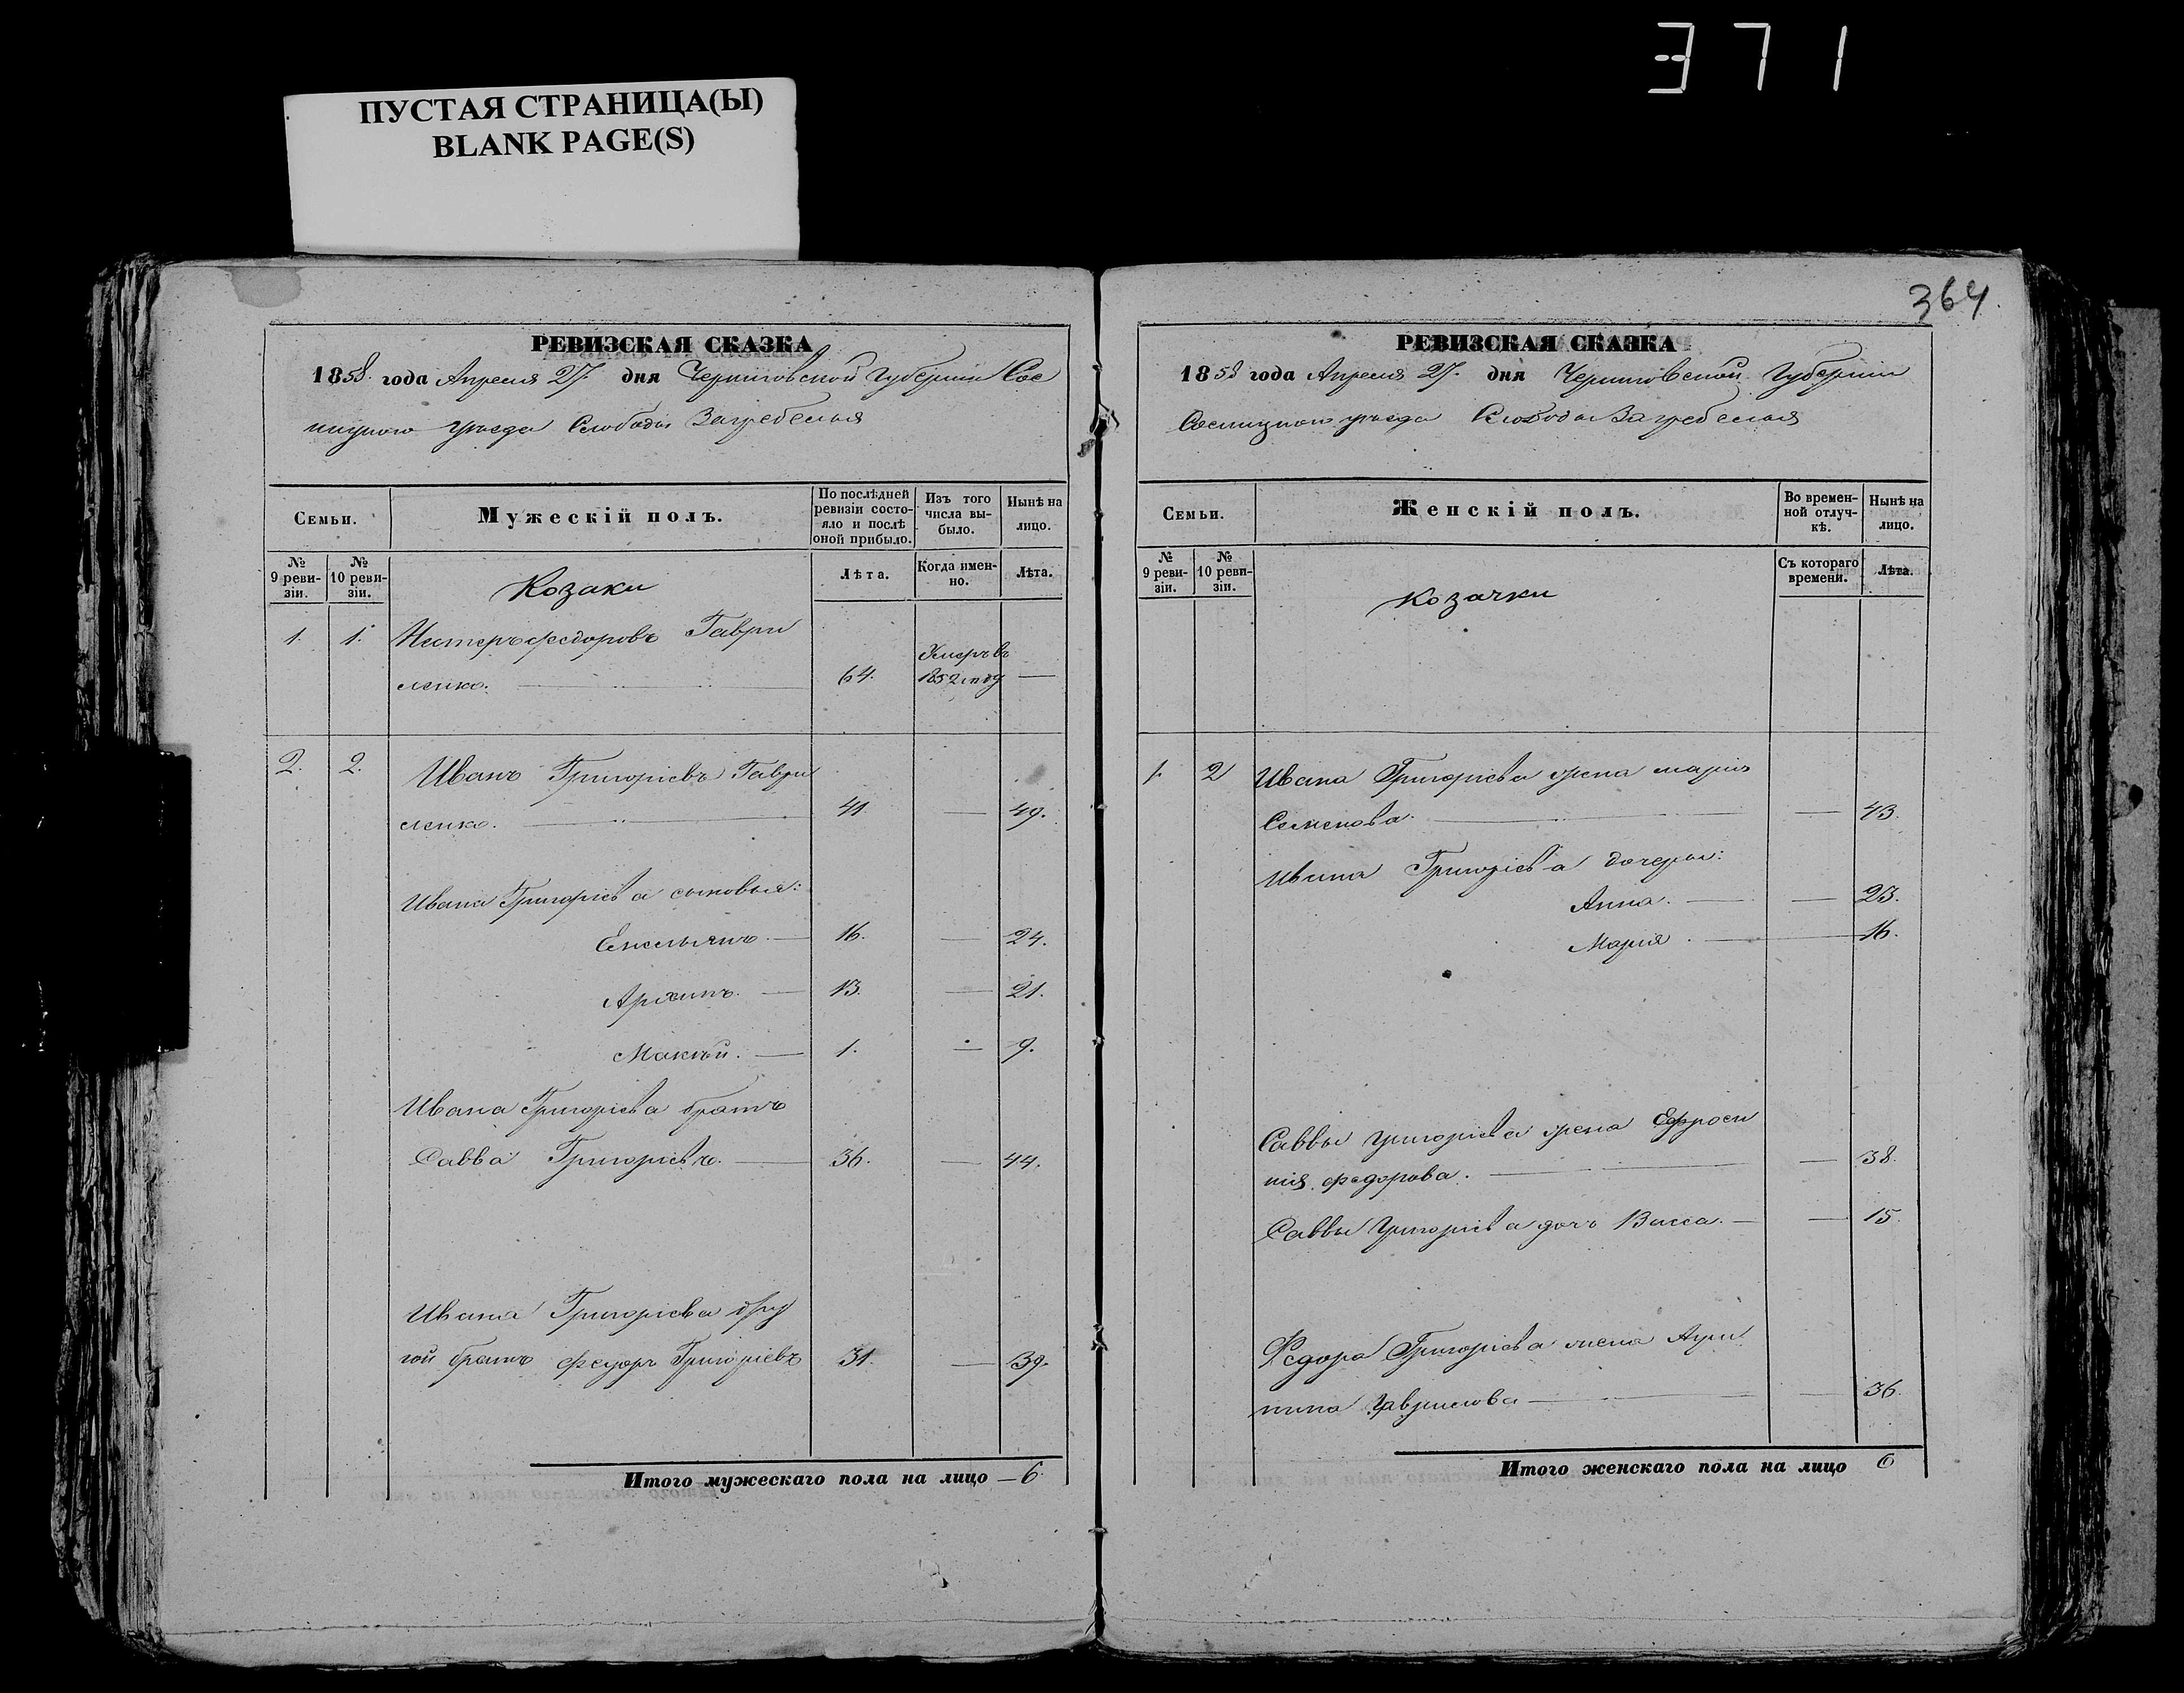 371
ПУСТАЯ СТРАНИЦА(Ы)
BLANK PAGE(S)
364.
РЕВИЗСКАЯ СКАЗКА
1858. года Апреля 27. дня Черниговской Губернии Сос
ницкого уезда Слободы Загребелья
Семьи.
Мужескій полъ.
По послѣдней ревизіи состо-
яло и послѣ оной прибыло.
Изъ того числа вы-
было.
Нынѣ на лицо.
№ 9 реви-
зіи.
№ 10 реви-
зіи.
Козаки
Лѣта.
Когда имен-
но.
Лѣта.
1. 1. Нестеръ Федоровъ Гаври
ленко. 64. Умеръ въ 1852 году —
2. 2. Иванъ Григоріевъ Гаври
ленко. 41 — 49.
Ивана Григоріева сыновья:
Емельянъ. — 16. — 24.
Архипъ. — 13. — 21.
Мокѣй. — 1. — 9.
Ивана Григоріева братъ
Савва Григоріевъ. — 36. — 44.
Ивана Григоріева дру
гой братъ Федоръ Григоріевъ 31. — 39.
Итого мужескаго пола на лицо — 6.
РЕВИЗСКАЯ СКАЗКА
1858 года Апреля 27. дня Черниговской Губернии
Сосницкого уезда Слободы Загребелья
Семьи.
Женскій полъ.
Во времен-
ной отлуч-
кѣ.
Нынѣ на лицо.
№ 9 реви-
зіи.
№ 10 реви-
зіи.
Козачки
Съ котораго времени.
Лѣта.
1. 2 Ивана Григоріева жена Марія
Семенова. — 43.
Ивана Григоріева дочери:
Анна. — — 23.
Марія. — 16.
Саввы Григоріева жена Ефроси
нія Федорова. — — 38.
Саввы Григоріева дочь Васса. — — 15.
Федора Григоріева жена Агри
пина Гаврилова — — 36.
Итого женскаго пола на лицо 6